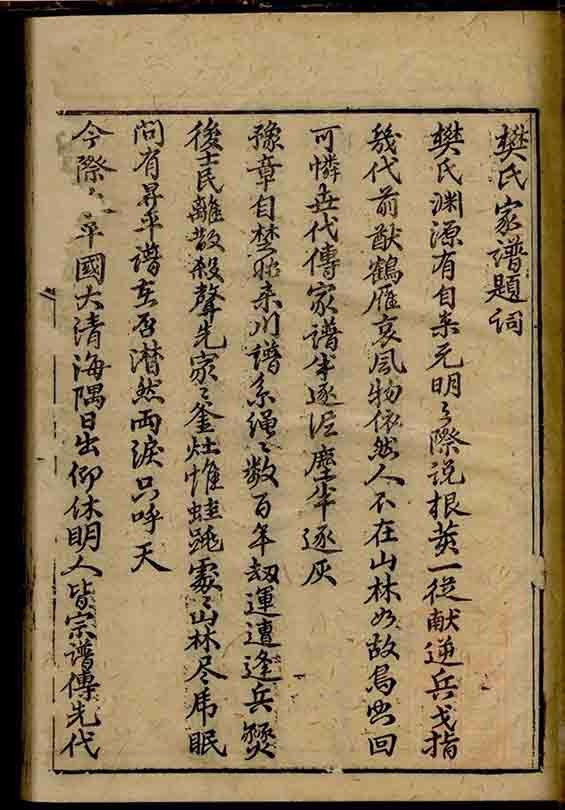 樊氏家譜題詞
樊氏渊源有自来元明之際説根荄一從献逆兵戈指
幾代前猷鶴雁哀風物依然人不在山林如故鳥回
可憐世代傳家譜半逐泥塵半逐灰
豫章自楚来川譜系绳〻数百年刼運遭逢兵燹
後士民離散殺聲先家〻釜灶惟蛙處〻山林尽虎眠
问有昇平譜在否潸然両淚只呼天
今際平國大清海隅日出仰休明人皆宗譜傳先代